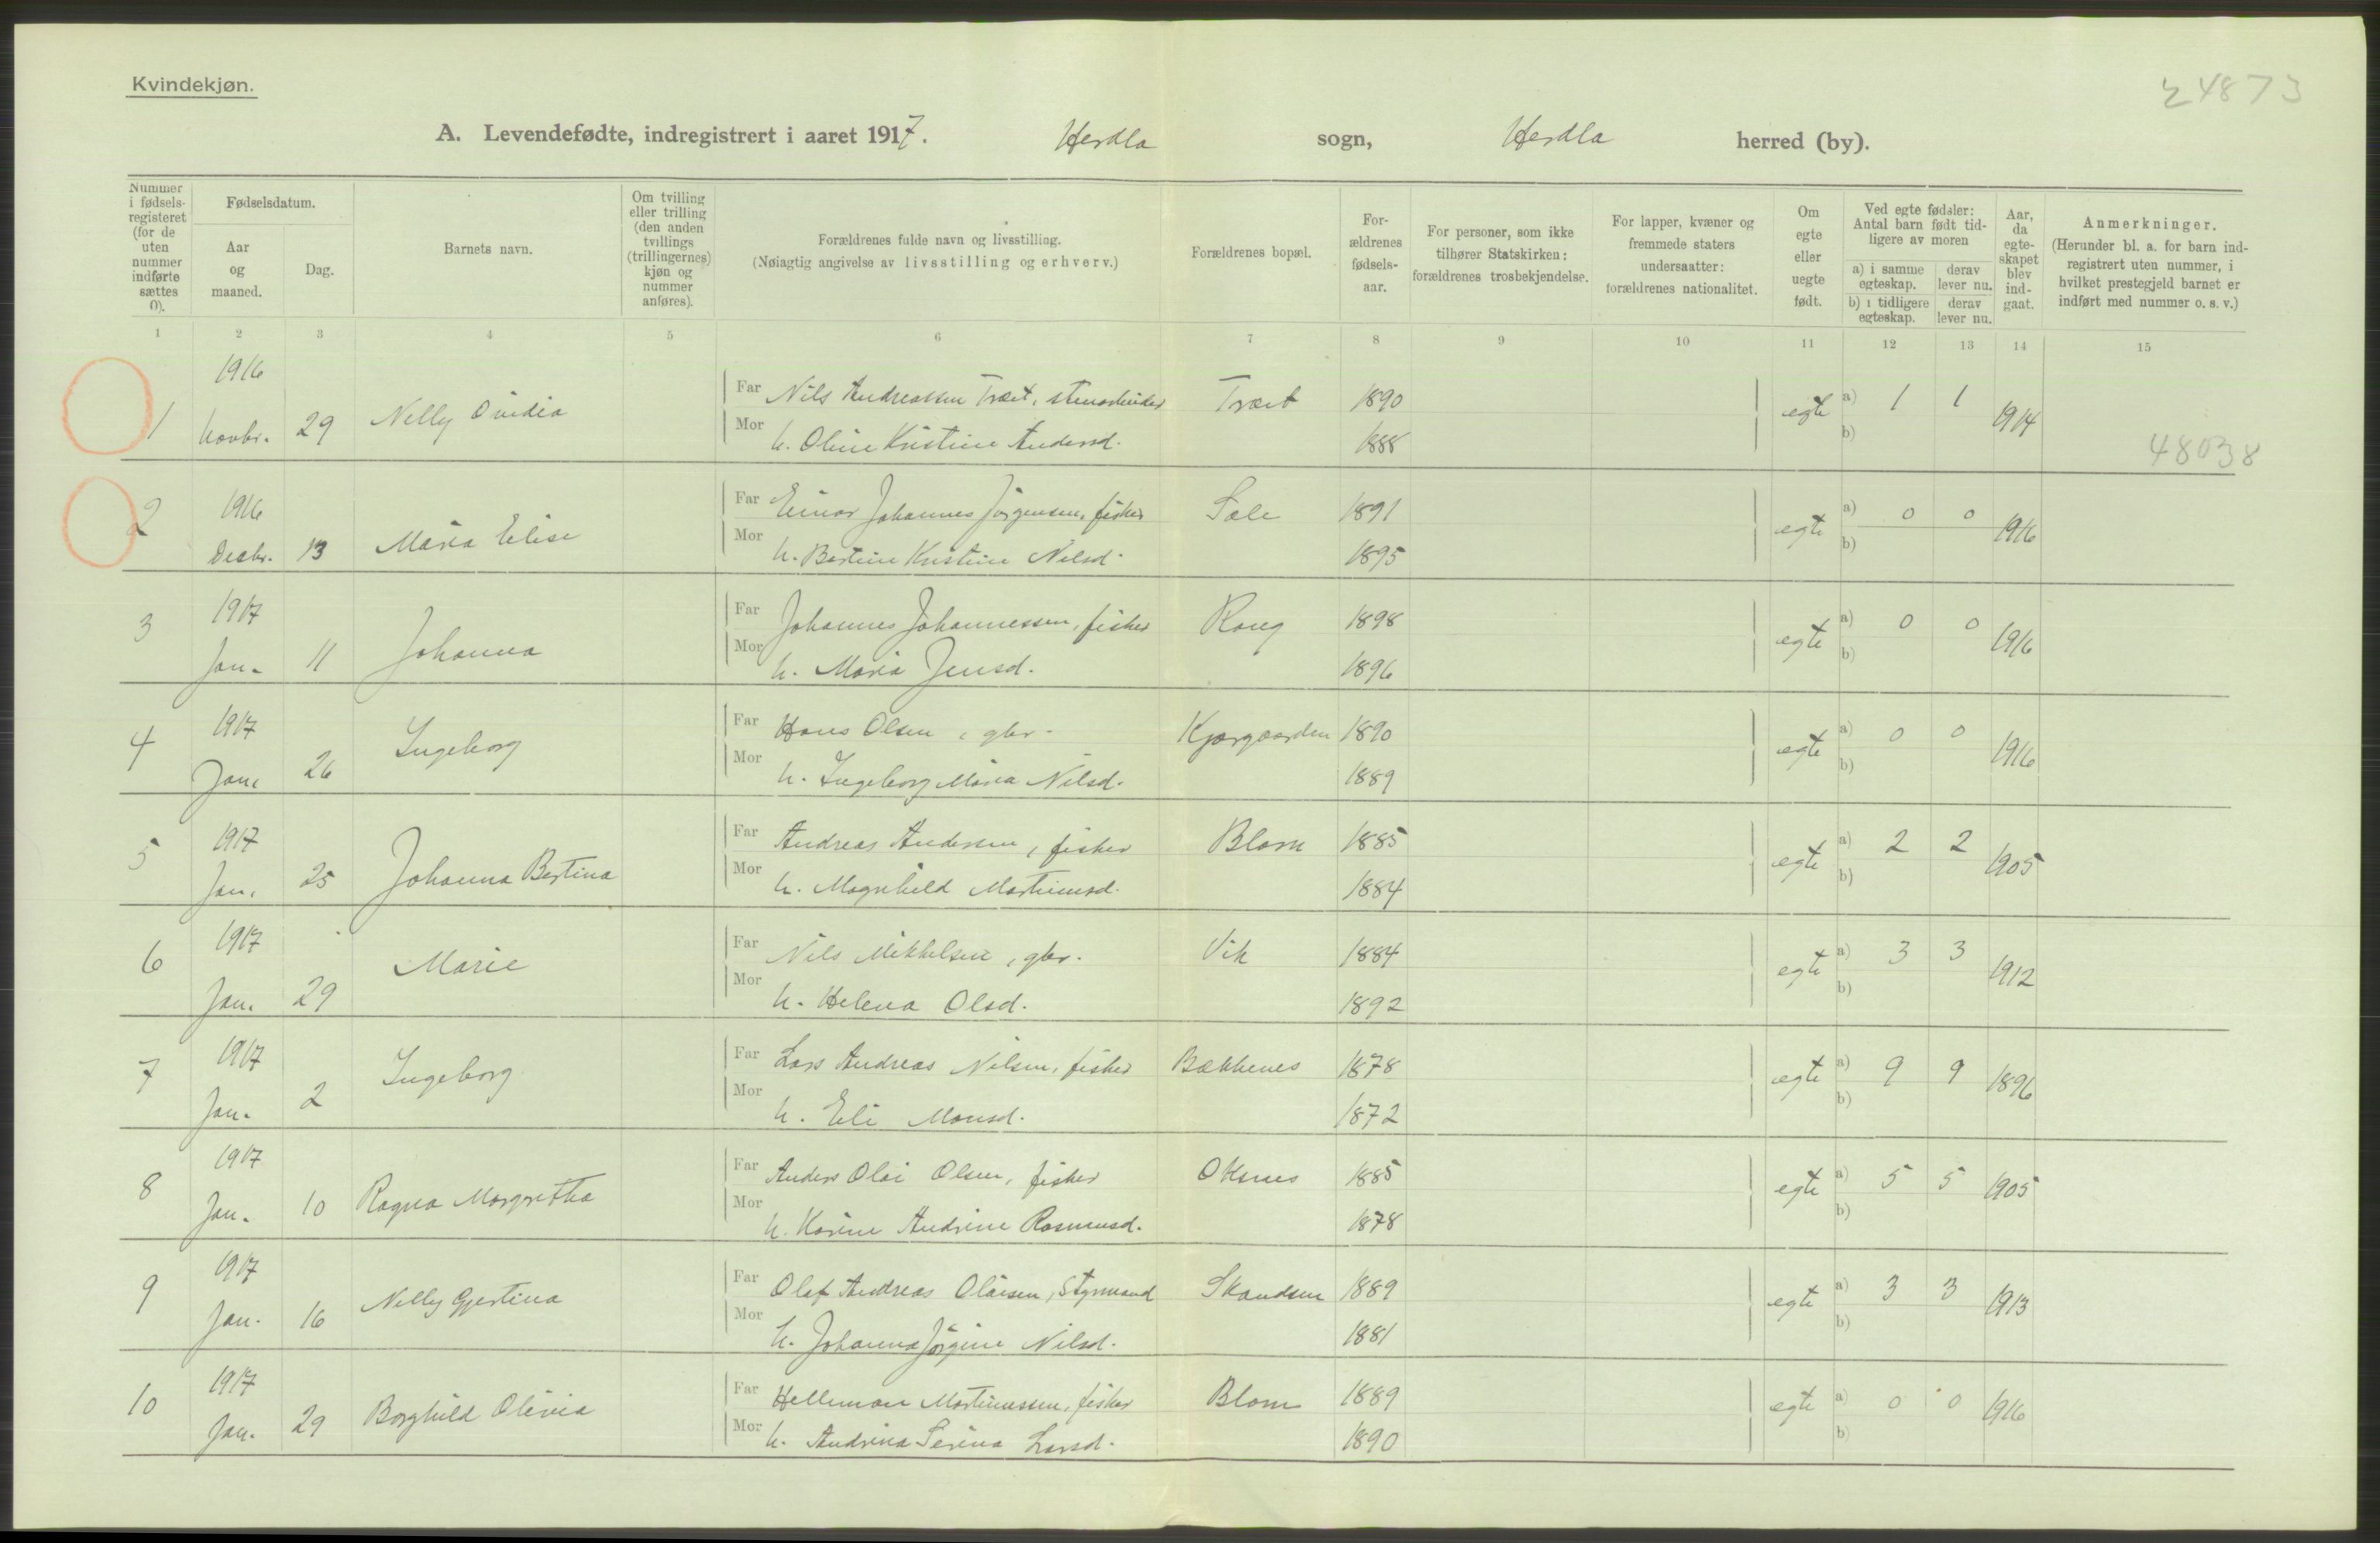 Kvindekjøn.
24873
A. Levendefødte, indregistrert i aaret 1917. Herdla sogn, Herdla herred (by).
Nummer i fødsels-registeret (for de uten nummer indførte sættes 0).
Fødselsdatum.
Aar og maaned.
Dag.
Barnets navn.
Om tvilling eller trilling (den anden tvillings (trillingernes) kjøn og nummer anføres).
Forældrenes fulde navn og livsstilling.
(Nøiagtig angivelse av livsstilling og erhverv.)
Forældrenes bopæl.
For-ældrenes fødsels-aar.
For personer, som ikke tilhører Statskirken: forældrenes trosbekjendelse.
For lapper, kvæner og fremmede staters undersaatter: forældrenes nationalitet.
Om egte eller uegte født.
Ved egte fødsler: Antal barn født tid-ligere av moren
a) i samme egteskap. derav lever nu.
b) i tidligere egteskap. derav lever nu.
Aar, da egte-skapet blev ind-gaat.
Anmerkninger.
(Herunder bl. a. for barn ind-registrert uten nummer, i hvilket prestegjeld barnet er indført med nummer o. s. v.)
1 2 3 4 5 6 7 8 9 10 11 12 13 14 15
1 1916 Novbr. 29 Nelly Ovidia Far Nils Andreassen Træt, stenarbeider Træt 1890 egte a) 1 1 1914
Mor h. Oline Kristine Andersd. 1888 b) 48038
2 1916 Decbr. 13 Maria Elise Far Einar Johannes Jørgensen, fisker Sæle 1891 egte a) 0 0 1916
Mor h. Bertine Kristine Nilsd. 1895 b)
3 1917 Jan. 11 Johanna Far Johannes Johannessen, fisker Rong 1898 egte a) 0 0 1916
Mor h. Maria Jensd. 1896 b)
4 1917 Jan. 26 Ingeborg Far Hans Olsen, gbr. Kjærgaarden 1890 egte a) 0 0 1916
Mor h. Ingeborg Maria Nilsd. 1889 b)
5 1917 Jan. 25 Johanna Bertina Far Andreas Andersen, fisker Blom 1885 egte a) 2 2 1905
Mor h. Magnhild Martinusd. 1884 b)
6 1917 Jan. 29 Marie Far Nils Mikkelsen, gbr. Vik 1884 egte a) 3 3 1912
Mor h. Helena Olsd. 1892 b)
7 1917 Jan. 2 Ingeborg Far Lars Andreas Nilsen, fisker Bækkenes 1878 egte a) 9 9 1896
Mor h. Eli Monsd. 1872 b)
8 1917 Jan. 10 Ragna Margretha Far Anders Olai Olsen, fisker Oksnes 1885 egte a) 5 5 1905
Mor h. Karine Andrine Rasmusd. 1878 b)
9 1917 Jan. 16 Nelly Gjertina Far Olaf Andreas Olaisen, Styrmand Skandsen 1889 egte a) 3 3 1913
Mor h. Johanna Jørgine Nilsd. 1881 b)
10 1917 Jan. 29 Borghild Olivia Far Martinussen, fisker Blom 1889 egte a) 0 0 1916
Mor h. Andrina Serina Larsd. 1890 b)